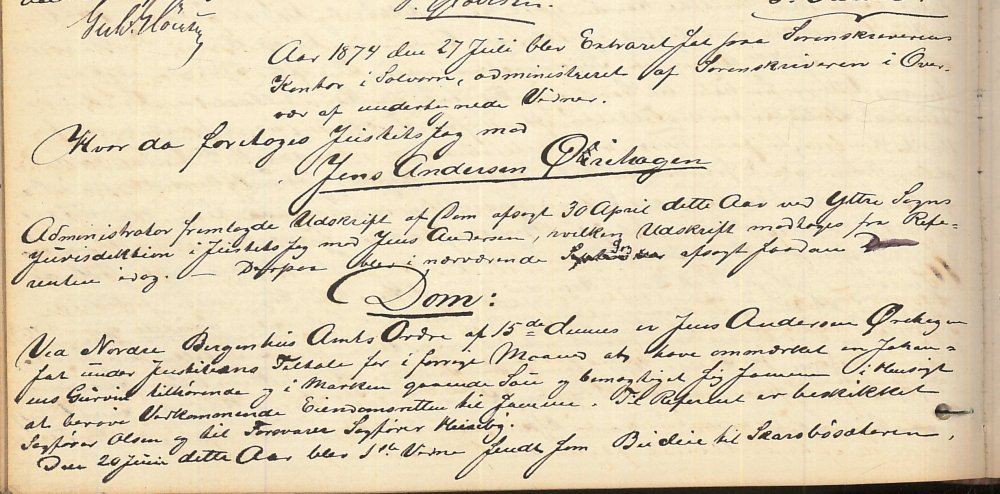 Aar 1874 den 27 Juli blev Extraret sat paa Sorenskriverens
Kontor i Solvorn, administreret af Sorenskriveren i Over-
vær af undertegnede Vidner.
Hvor da foretoges Justitssag mod
Jens Andersen Ørehagen
Administrator fremlagde Udskrift af Dom afsagt 30 April dette Aar ved Yttre Sogns
Jurisdiktion i Justitssag mod Jens Andersen, hvilken Udskrift modtoges fra Refe-
renten idag. — Derpaa blev i nærværende Sag afsagt saadan
Dom:
Ved Nordre Bergenhus Amts Ordre af 15de dennes er Jens Andersen Ørehagen
sat under Justitiens Tiltale for i forrige Maaned at have ommærket en Johan-
nes tilhørende og i Marken gaaende Sau og bemægtiget sig samme i Hensigt
at berøve Vedkommende Eiendomsretten til samme. Til Referent er beskikket
Sagfører Olsen og til Forsvarer Sagfører Heiberg.
Den 20 Juni dette Aar blev 1ste Vidne sendt som Budeie til Skarsbøsæteren,